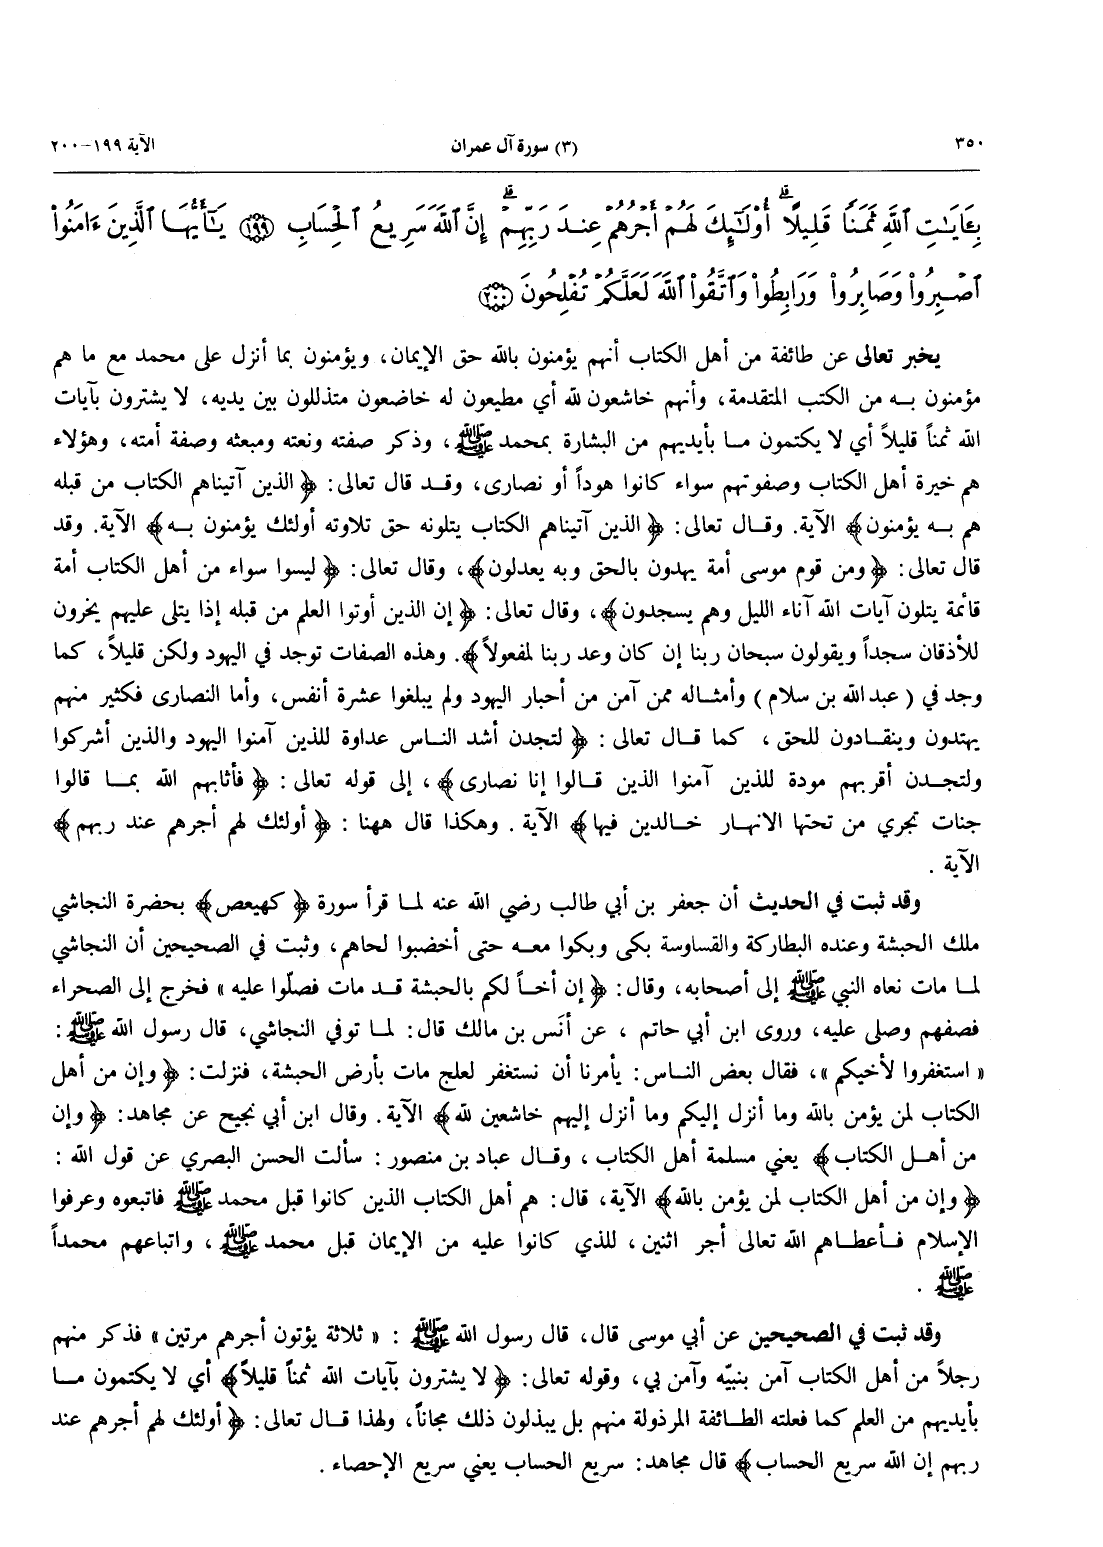 ٣٥٠ (٣) سورة آل عمران الآية ١٩٩-٢٠٠
بِـَٔايَٰتِ ٱللَّهِ ثَمَنًا قَلِيلًا ۗ أُو۟لَٰٓئِكَ لَهُمْ أَجْرُهُمْ عِندَ رَبِّهِمْ ۗ إِنَّ ٱللَّهَ سَرِيعُ ٱلْحِسَابِ ١٩٩ يَٰٓأَيُّهَا ٱلَّذِينَ ءَامَنُوا۟
ٱصْبِرُوا۟ وَصَابِرُوا۟ وَرَابِطُوا۟ وَٱتَّقُوا۟ ٱللَّهَ لَعَلَّكُمْ تُفْلِحُونَ ٢٠٠
يخبر تعالى عن طائفة من أهل الكتاب أنهم يؤمنون بالله حق الإيمان، ويؤمنون بما أنزل على محمد مع ما هم
مؤمنون به من الكتب المتقدمة، وأنهم خاشعون لله أي مطيعون له خاضعون متذللون بين يديه، لا يشترون بآيات
الله ثمناً قليلاً أي لا يكتمون ما بأيديهم من البشارة بمحمد ﷺ، وذكر صفته ونعته ومبعثه وصفة أمته، وهؤلاء
هم خيرة أهل الكتاب وصفوتهم سواء كانوا هوداً أو نصارى، وقد قال تعالى: ﴿ الذين آتيناهم الكتاب من قبله
هم به يؤمنون﴾ الآية. وقال تعالى: ﴿ الذين آتيناهم الكتاب يتلونه حق تلاوته أولئك يؤمنون به﴾ الآية. وقد
قال تعالى: ﴿ ومن قوم موسى أمة يهدون بالحق وبه يعدلون﴾، وقال تعالى: ﴿ ليسوا سواء من أهل الكتاب أمة
قائمة يتلون آيات الله آناء الليل وهم يسجدون﴾، وقال تعالى: ﴿ إن الذين أوتوا العلم من قبله إذا يتلى عليهم يخرون
للأذقان سجداً ويقولون سبحان ربنا إن كان وعد ربنا لمفعولاً﴾. وهذه الصفات توجد في اليهود ولكن قليلاً، كما
وجد في ( عبد الله بن سلام ) وأمثاله ممن آمن من أحبار اليهود ولم يبلغوا عشرة أنفس، وأما النصارى فكثير منهم
يهتدون وينقادون للحق، كما قال تعالى: ﴿ لتجدن أشد الناس عداوة للذين آمنوا اليهود والذين أشركوا
ولتجدن أقربهم مودة للذين آمنوا الذين قالوا إنا نصارى﴾، إلى قوله تعالى: ﴿ فأثابهم الله بما قالوا
جنات تجري من تحتها الانهار خالدين فيها﴾ الآية. وهكذا قال ههنا: ﴿ أولئك لهم أجرهم عند ربهم﴾
الآية .
وقد ثبت في الحديث أن جعفر بن أبي طالب رضي الله عنه لما قرأ سورة ﴿ كهيعص﴾ بحضرة النجاشي
ملك الحبشة وعنده البطاركة والقساوسة بكى وبكوا معه حتى أخضبوا لحاهم، وثبت في الصحيحين أن النجاشي
لما مات نعاه النبي ﷺ إلى أصحابه، وقال: ﴿ إن أخاً لكم بالحبشة قد مات فصلّوا عليه » فخرج إلى الصحراء
فصفهم وصلى عليه، وروى ابن أبي حاتم ، عن أنَس بن مالك قال: لما توفي النجاشي، قال رسول الله ﷺ :
« استغفروا لأخيكم »، فقال بعض الناس: يأمرنا أن نستغفر لعلج مات بأرض الحبشة، فنزلت: ﴿ وإن من أهل
الكتاب لمن يؤمن بالله وما أنزل إليكم وما أنزل إليهم خاشعين لله﴾ الآية. وقال ابن أبي نجيح عن مجاهد: ﴿ وإن
من أهل الكتاب﴾ يعني مسلمة أهل الكتاب، وقال عباد بن منصور: سألت الحسن البصري عن قول الله :
﴿ وإن من أهل الكتاب لمن يؤمن بالله﴾ الآية، قال: هم أهل الكتاب الذين كانوا قبل محمد ﷺ فاتبعوه وعرفوا
الإسلام فأعطاهم الله تعالى أجر اثنين، للذي كانوا عليه من الإيمان قبل محمد ﷺ، واتباعهم محمداً
ﷺ .
وقد ثبت في الصحيحين عن أبي موسى قال، قال رسول الله ﷺ : « ثلاثة يؤتون أجرهم مرتين » فذكر منهم
رجلاً من أهل الكتاب آمن بنبيّه وآمن بي، وقوله تعالى: ﴿ لا يشترون بآيات الله ثمناً قليلاً﴾ أي لا يكتمون ما
بأيديهم من العلم كما فعلته الطائفة المرذولة منهم بل يبذلون ذلك مجاناً، ولهذا قال تعالى: ﴿ أولئك لهم أجرهم عند
ربهم إن الله سريع الحساب﴾ قال مجاهد: سريع الحساب يعني سريع الإحصاء .